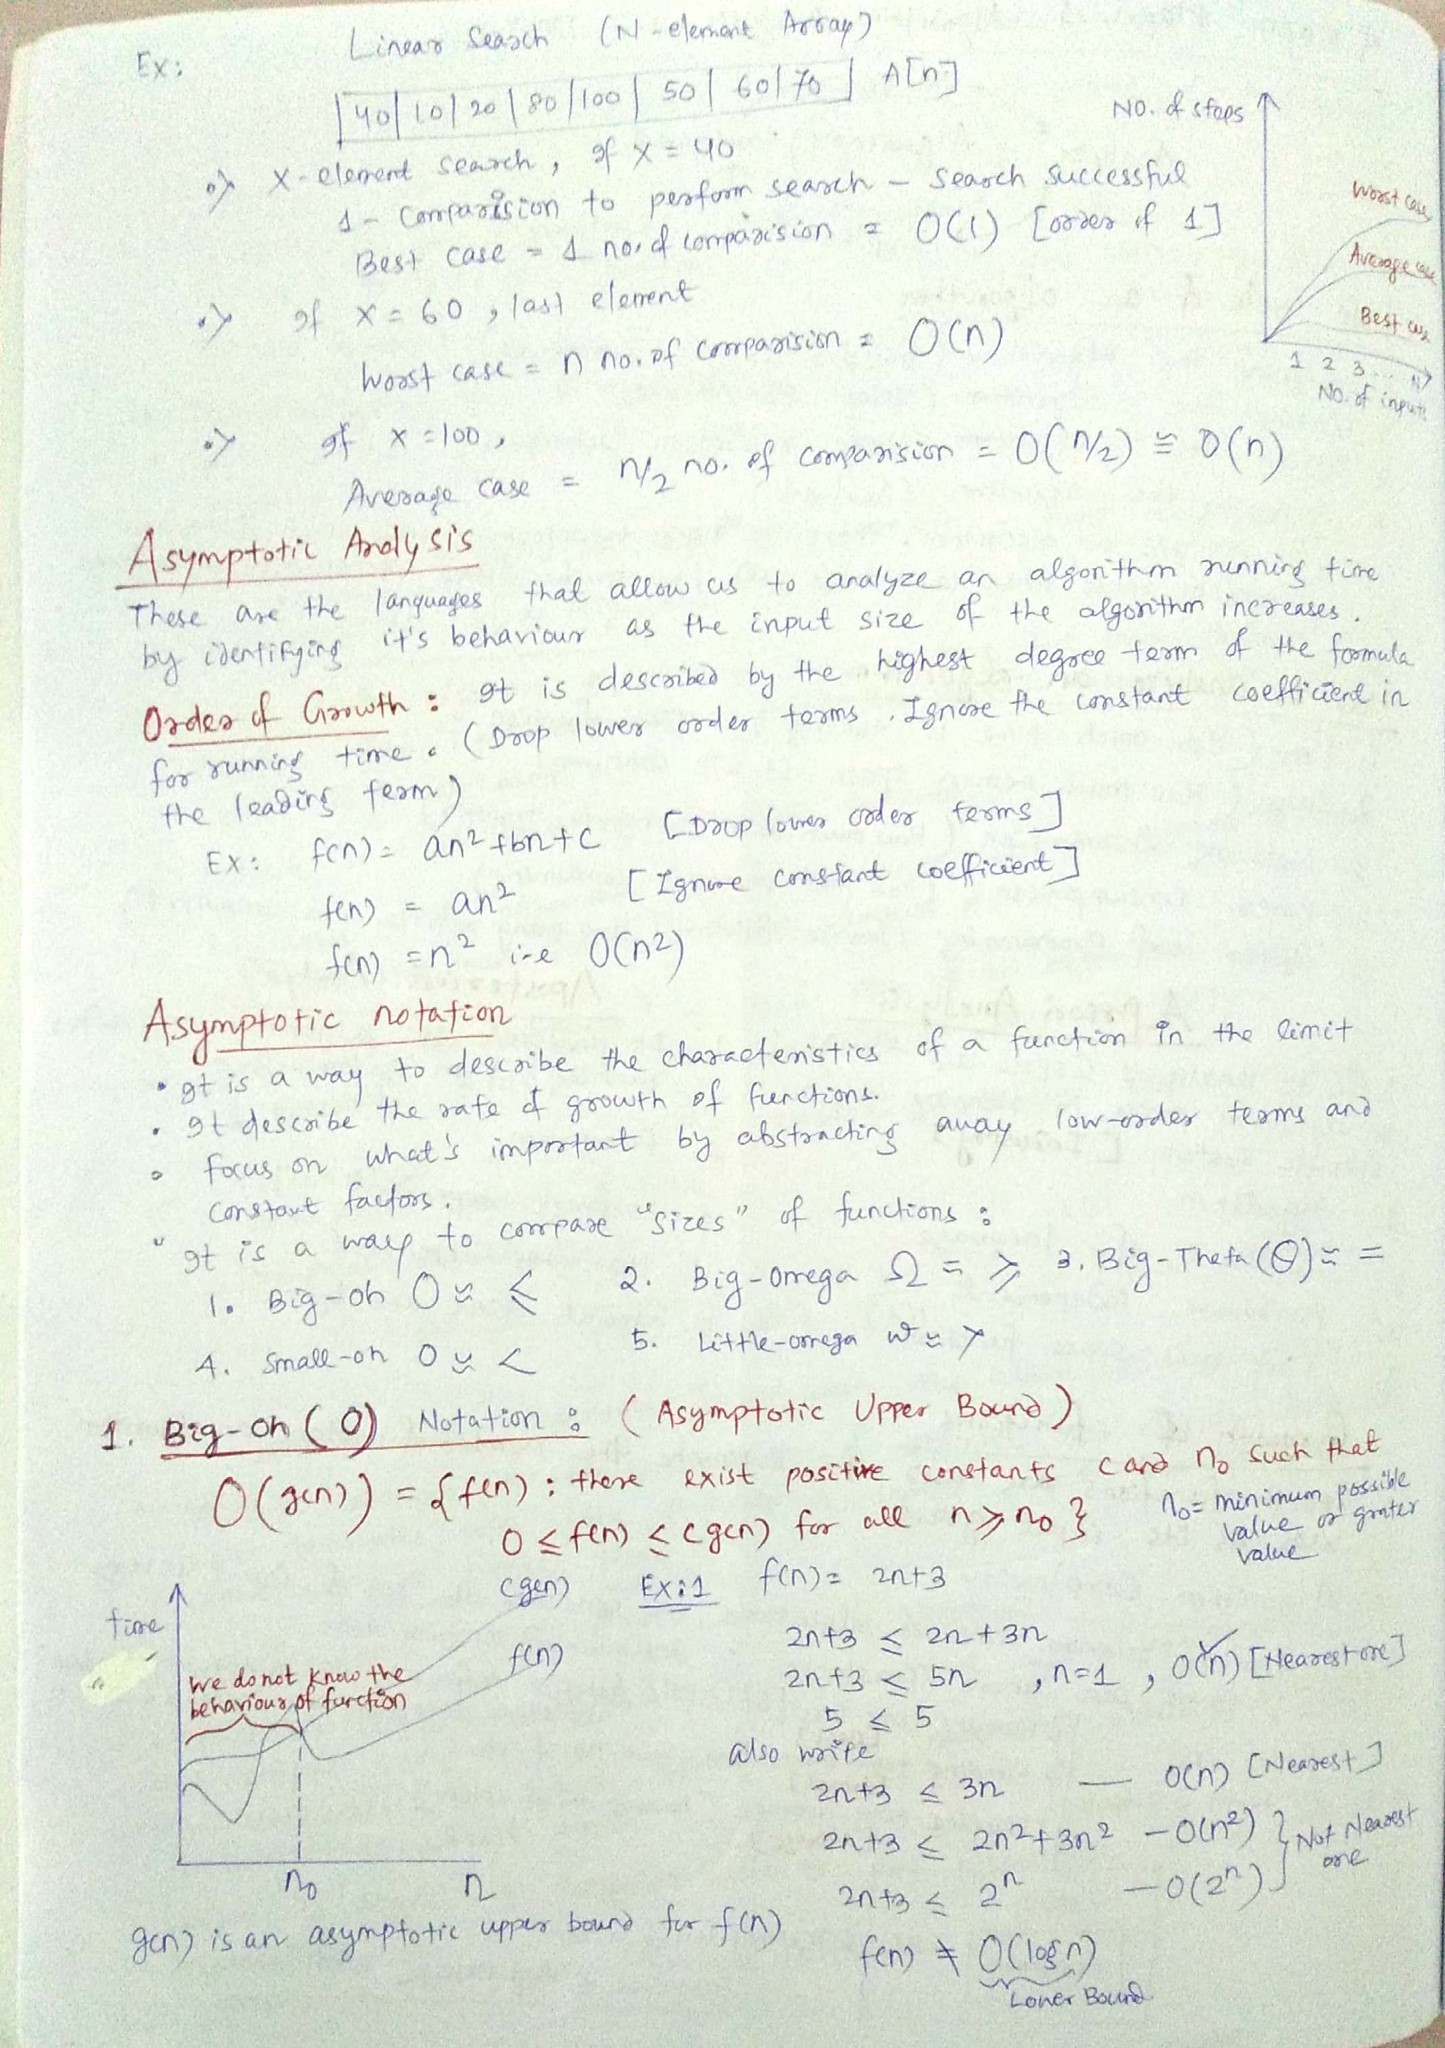 Ex: Linear Search (N-element Array)
|40|10|20|80|100|50|60|70| A[n]
•> X-element search, If X = 40
1 - Comparision to perform search - search successful
Best case = 1 no. of comparision = O(1) [order of 1]
•> If X = 60, last element
Worst case = n no. of comparision = O(n)
•> If X = 100,
Average case = n/2 no. of comparision = O(n/2) ≅ O(n)
No. of steps
Worst case
Average case
Best case
1 2 3 ... N
No. of inputs
Asymptotic Analysis
These are the languages that allow us to analyze an algorithm running time
by identifying it's behaviour as the input size of the algorithm increases.
Order of Growth : It is described by the highest degree term of the formula
for running time. (Drop lower order terms. Ignore the constant coefficient in
the leading term)
Ex: f(n) = an²+bn+c [Drop lower order terms]
f(n) = an² [Ignore constant coefficient]
f(n) = n² i-e O(n²)
Asymptotic notation
• It is a way to describe the characteristics of a function in the limit
• It describe the rate of growth of functions.
• focus on what's important by abstracting away low-order terms and
constant factors.
• It is a way to compare "sizes" of functions :
1. Big-oh O ≈ ≤ 2. Big-Omega Ω ≈ ≥ 3. Big-Theta (Θ) ≈ =
4. Small-oh o ≈ < 5. Little-omega ω ≈ >
1. Big-Oh (O) Notation : (Asymptotic Upper Bound)
O(g(n)) = {f(n) : there exist positive constants c and n₀ such that
0 ≤ f(n) ≤ cg(n) for all n ≥ n₀ }
n₀ = minimum possible
value or grater
value
time
cg(n)
f(n)
We do not know the
behaviour of function
n₀ n
g(n) is an asymptotic upper bound for f(n)
Ex:1 f(n) = 2n+3
2n+3 ≤ 2n+3n
2n+3 ≤ 5n , n=1 , O(n) [Nearest one]
5 ≤ 5
also write
2n+3 ≤ 3n — O(n) [Nearest]
2n+3 ≤ 2n²+3n² - O(n²) } Not Nearest
2n+3 ≤ 2ⁿ - O(2ⁿ) } one
f(n) ≠ O(logn)
Lower Bound